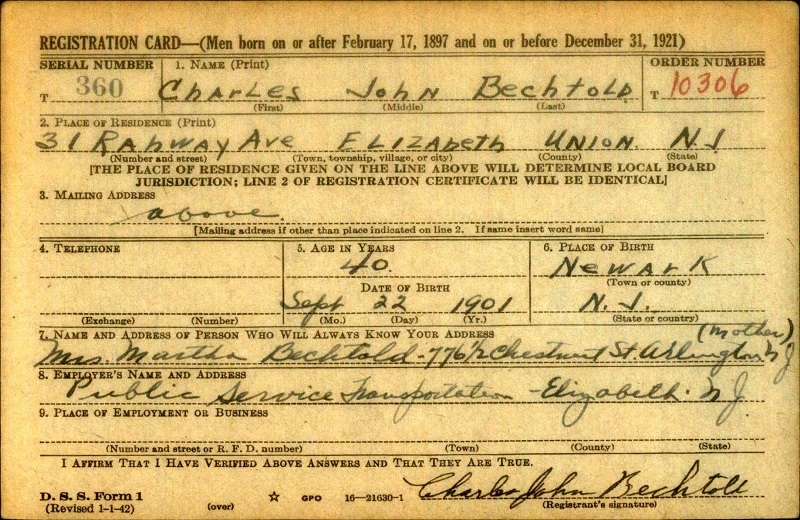 REGISTRATION CARD—(Men born on or after February 17, 1897 and on or before December 31, 1921)
SERIAL NUMBER 1. NAME (Print) ORDER NUMBER
T 360 Charles John Bechtold T 10306
(First) (Middle) (Last)
2. PLACE OF RESIDENCE (Print)
31 Rahway Ave Elizabeth Union N.J
(Number and street) (Town, township, village, or city) (County) (State)
[THE PLACE OF RESIDENCE GIVEN ON THE LINE ABOVE WILL DETERMINE LOCAL BOARD
JURISDICTION; LINE 2 OF REGISTRATION CERTIFICATE WILL BE IDENTICAL]
3. MAILING ADDRESS
above.
[Mailing address if other than place indicated on line 2. If same insert word same]
4. TELEPHONE 5. AGE IN YEARS 6. PLACE OF BIRTH
40. Newark
(Town or county)
DATE OF BIRTH
Sept 22 1901 N.J.
(Exchange) (Number) (Mo.) (Day) (Yr.) (State or country)
7. NAME AND ADDRESS OF PERSON WHO WILL ALWAYS KNOW YOUR ADDRESS (Mother)
Mrs. Martha Bechtold - 776½ Chestnut St. Arlington N J
8. EMPLOYER'S NAME AND ADDRESS
Public Service Transportation - Elizabeth. N J.
9. PLACE OF EMPLOYMENT OR BUSINESS
(Number and street or R. F. D. number) (Town) (County) (State)
I AFFIRM THAT I HAVE VERIFIED ABOVE ANSWERS AND THAT THEY ARE TRUE.
D. S. S. Form 1 Charles John Bechtold
(Revised 1-1-42) (over) ☆ GPO 16—21630-1 (Registrant's signature)